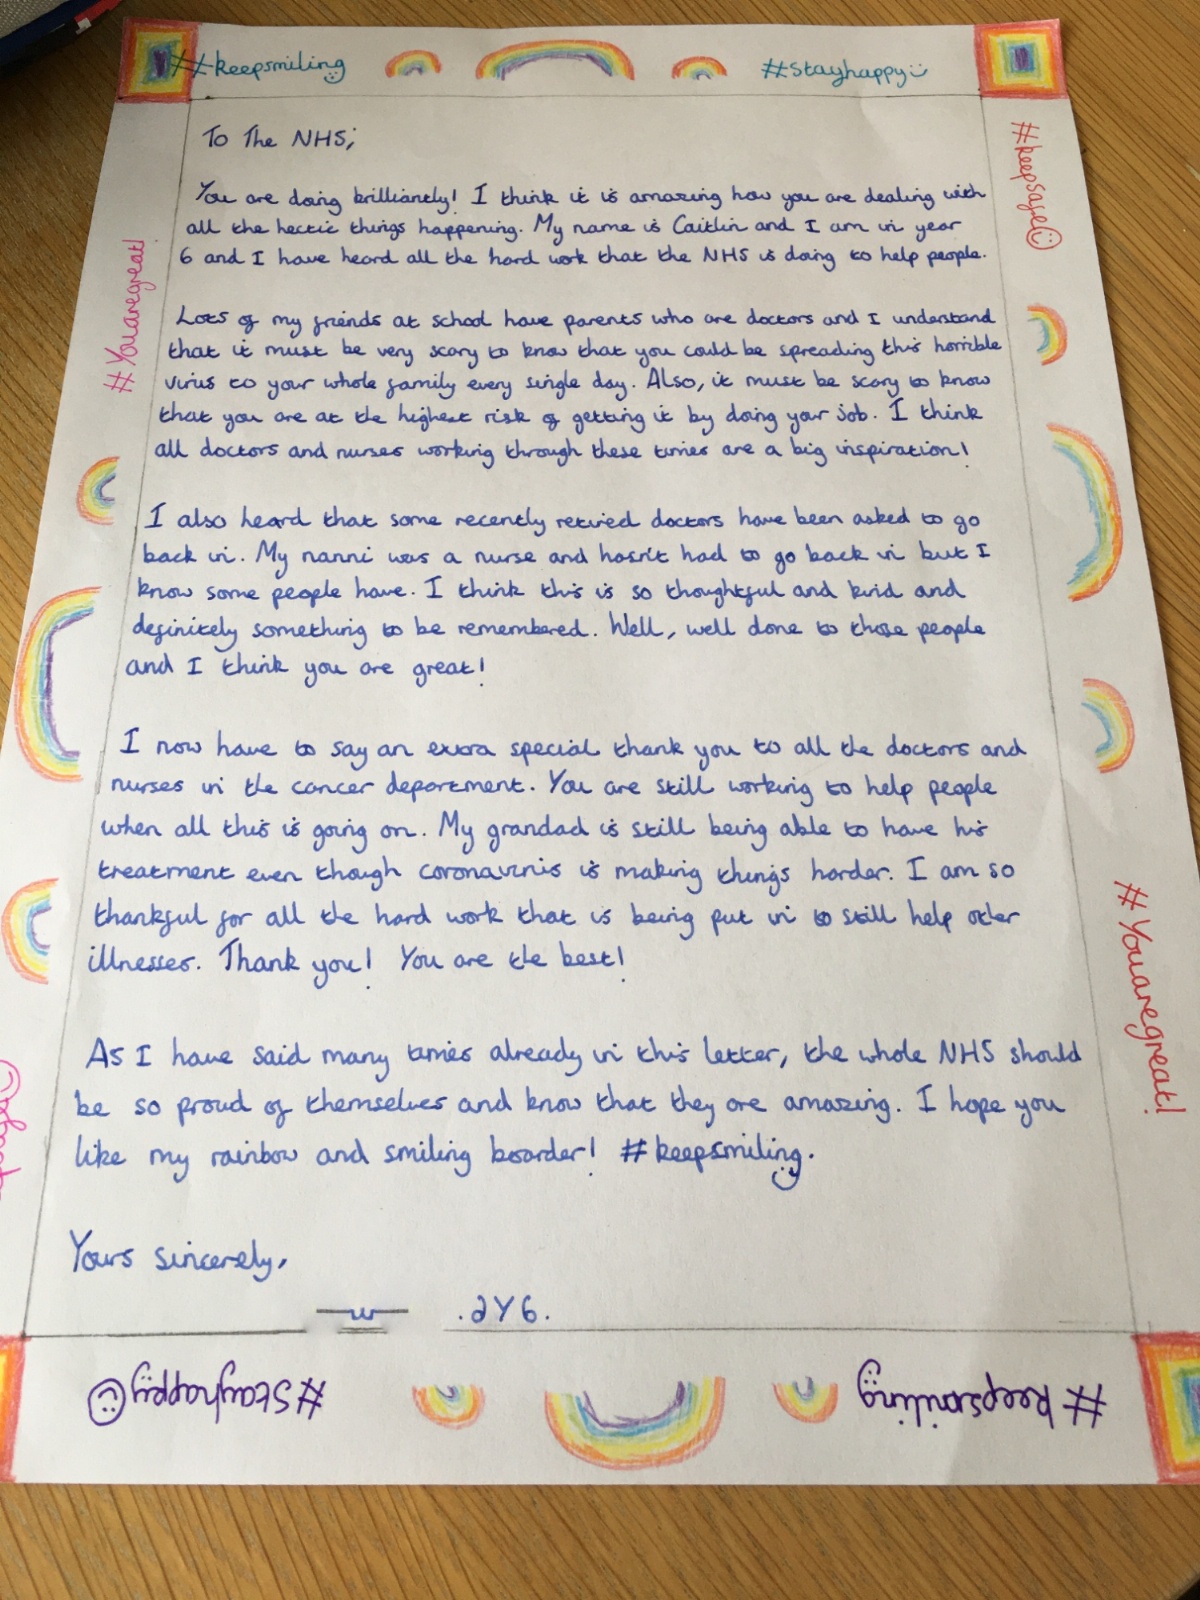 #keepsmiling
#Stayhappy
#keepsafe
#Youaregreat!
To The NHS;
You are doing brilliantly! I think it is amazing how you are dealing with
all the hectic things happening. My name is Caitlin and I am in year
6 and I have heard all the hard work that the NHS is doing to help people.
Lots of my friends at school have parents who are doctors and I understand
that it must be very scary to know that you could be spreading this horrible
virus to your whole family every single day. Also, it must be scary to know
that you are at the highest risk of getting it by doing your job. I think
all doctors and nurses working through these times are a big inspiration!
I also heard that some recently retired doctors have been asked to go
back in. My nanni was a nurse and hasn't had to go back in but I
know some people have. I think this is so thoughtful and kind and
definitely something to be remembered. Well, well done to those people
and I think you are great!
I now have to say an extra special thank you to all the doctors and
nurses in the cancer department. You are still working to help people
when all this is going on. My grandad is still being able to have his
treatment even though coronavirus is making things harder. I am so
thankful for all the hard work that is being put in to still help other
illnesses. Thank you! You are the best!
#Youaregreat!
As I have said many times already in this letter, the whole NHS should
be so proud of themselves and know that they are amazing. I hope you
like my rainbow and smiling boarder! #keepsmiling.
Yours sincerely,
.2Y6.
#Stayhappy
#keepsmiling